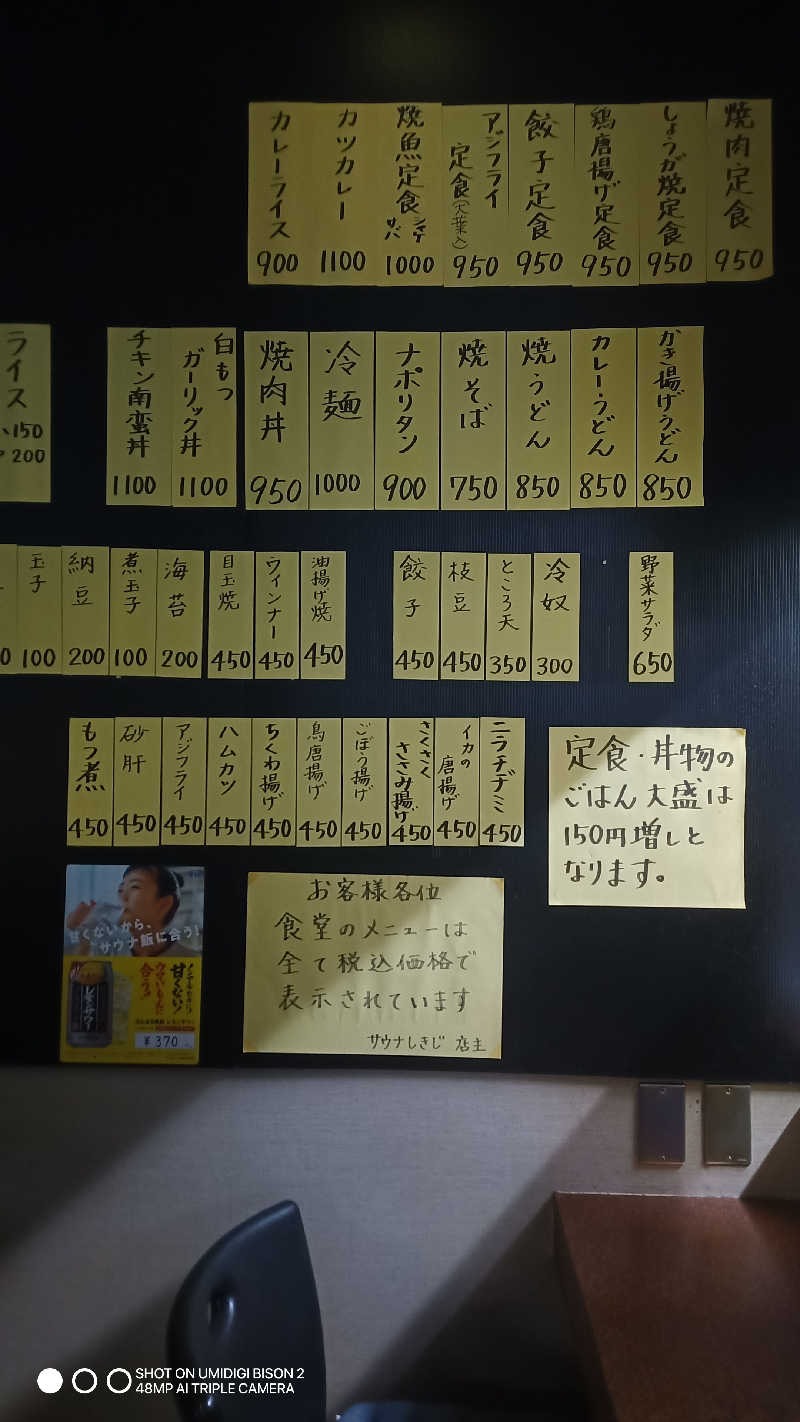 焼肉定食
950
しょうが焼定食
950
鶏唐揚げ定食
950
餃子定食
950
アジフライ
定食(大葉入)
950
焼魚定食
シャケ
サバ
1000
カツカレー
1100
カレーライス
900
かき揚げうどん
850
カレーうどん
850
焼うどん
850
焼そば
750
ナポリタン
900
冷麺
1000
焼肉丼
950
白もつ
ガーリック丼
1100
チキン南蛮丼
1100
ライス
150
200
野菜サラダ
650
冷奴
300
ところ天
350
枝豆
450
餃子
450
油揚げ焼
450
ウィンナー
450
目玉焼
450
海苔
200
煮玉子
100
納豆
200
玉子
100
ニラチヂミ
450
イカの
唐揚げ
450
さくさく
ささみ揚げ
450
ごぼう揚げ
450
鳥唐揚げ
450
ちくわ揚げ
450
ハムカツ
450
アジフライ
450
砂肝
450
もつ煮
450
定食・丼物の
ごはん大盛は
150円増しと
なります。
お客様各位
食堂のメニューは
全て税込価格で
表示されています
サウナしきじ 店主
甘くないから、
サウナ飯に合う!
甘くない!
合う!
レモンサワー
¥370
SHOT ON UMIDIGI BISON 2
48MP AI TRIPLE CAMERA